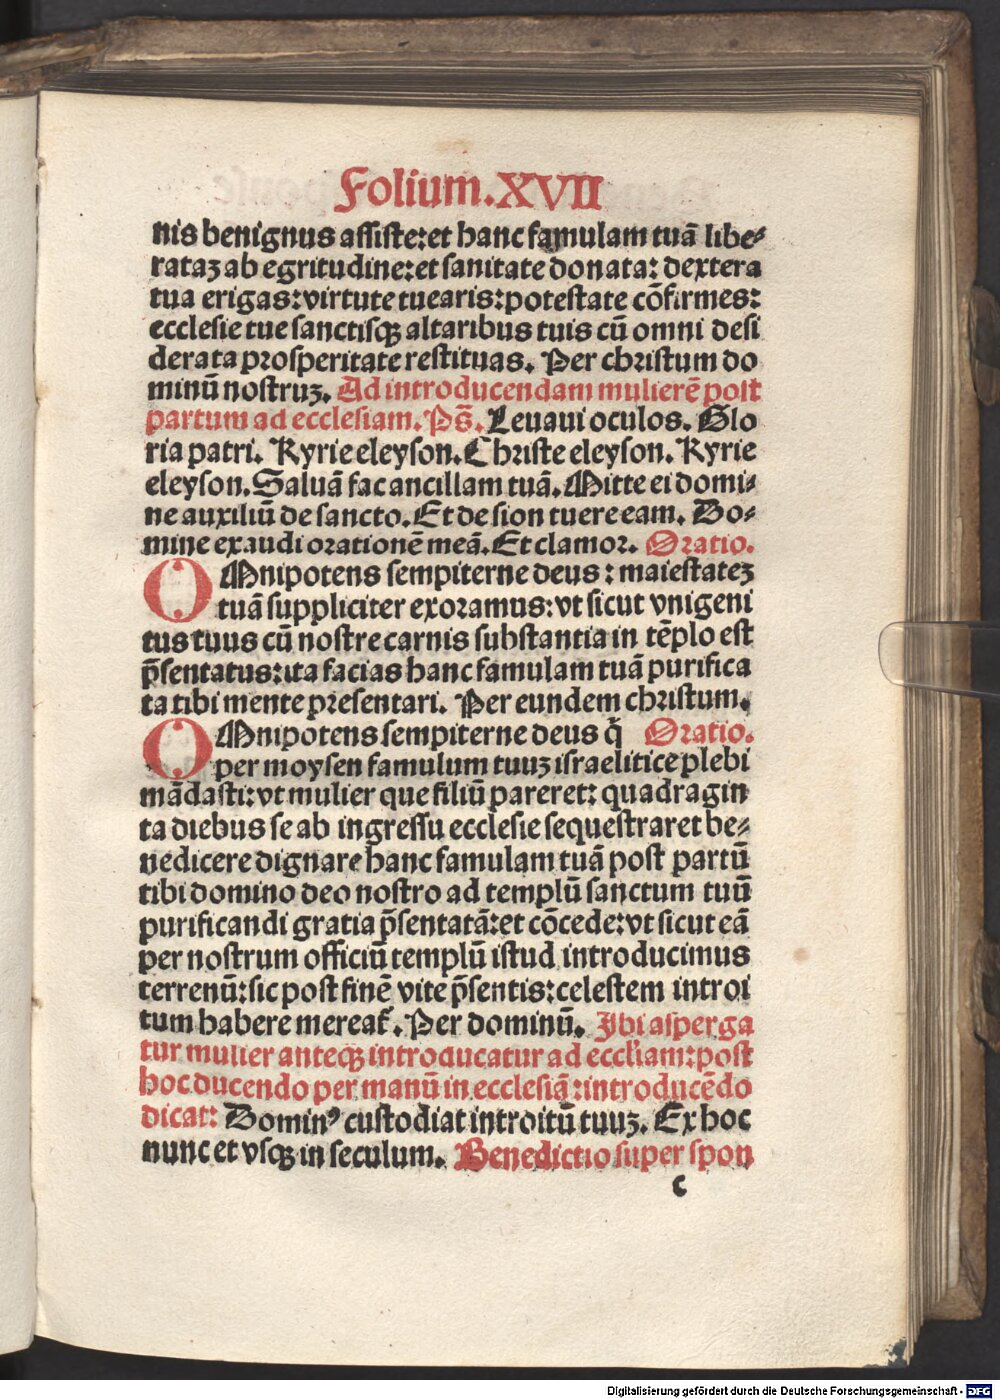 Folium.XVII
nis benignus assiste:et hanc famulam tuā libe⸗
rataꝫ ab egritudine:et sanitate donata: dextera
tua erigas:virtute tuearis:potestate cōfirmes:
ecclesie tue sanctisqꝫ altaribus tuis cū omni desi
derata prosperitate restituas. Per christum do
minū nostruꝫ. Ad introducendam mulierē post
partum ad ecclesiam. Ps̄. Leuaui oculos. Glo
ria patri. Kyrie eleyson. Christe eleyson. Kyrie
eleyson. Saluā fac ancillam tuā. Mitte ei domi⸗
ne auxiliū de sancto. Et de sion tuere eam. Do⸗
mine exaudi orationē meā. Et clamor. Oratio.
OMnipotens sempiterne deus : maiestateꝫ
tuā suppliciter exoramus:vt sicut vnigeni
tus tuus cū nostre carnis substantia in tēplo est
p̄sentatus:ita facias hanc famulam tuā purifica
ta tibi mente presentari. Per eundem christum.
OMnipotens sempiterne deus q̄ Oratio.
per moysen famulum tuuꝫ israelitice plebi
mādasti:vt mulier que filiū pareret: quadragin
ta diebus se ab ingressu ecclesie sequestraret be⸗
nedicere dignare hanc famulam tuā post partū
tibi domino deo nostro ad templū sanctum tuū
purificandi gratia p̄sentatā:et cōcede:vt sicut eā
per nostrum officiū templū istud introducimus
terrenū:sic post finē vite p̄sentis:celestem introi
tum habere mereat᷑. Per dominū. Ibi asperga
tur mulier anteqꝫ introducatur ad eccl'iam:post
hoc ducendo per manū in ecclesiā:introducēdo
dicat: Dominꝰ custodiat introitū tuuꝫ. Ex hoc
nunc et vsqꝫ in seculum. Benedictio super spon
c
Digitalisierung gefördert durch die Deutsche Forschungsgemeinschaft - DFG